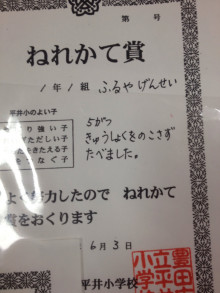 第 号
ねれかて賞
1年1組 ふるや げんせい
平井小のよい子
り強い子
ただしい子
きたえる子
なぐ子
5がつ
きゅうしょくをのこさず
たべました。
力したので ねれかて
賞をおくります
6月3日
平井小学校